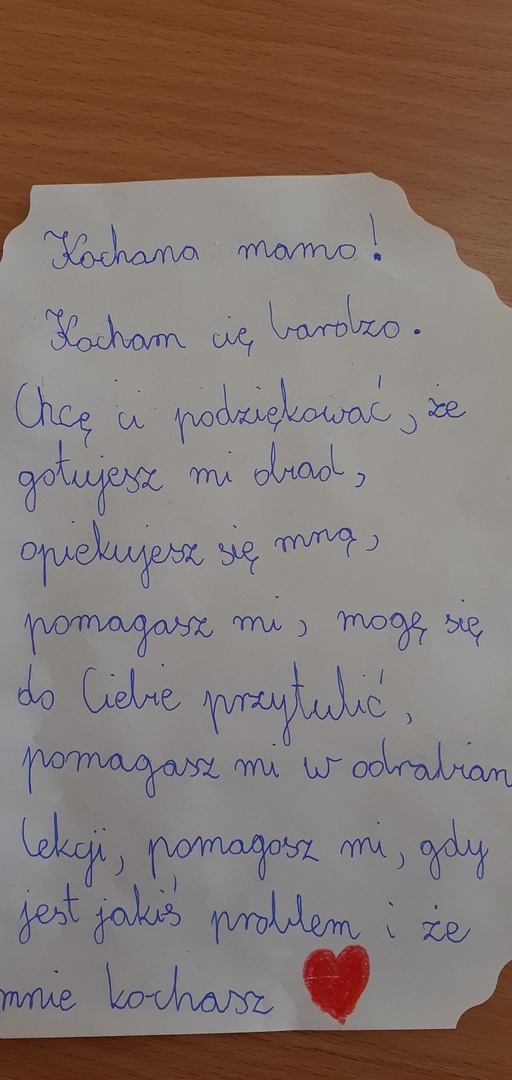 Kochana mamo!
Kocham cię bardzo.
Chcę ci podziękować, że
gotujesz mi obiad,
opiekujesz się mną,
pomagasz mi, mogę się
do Ciebie przytulić,
pomagasz mi w odrabian
lekcji, pomagasz mi, gdy
jest jakiś problem i że
mnie kochasz